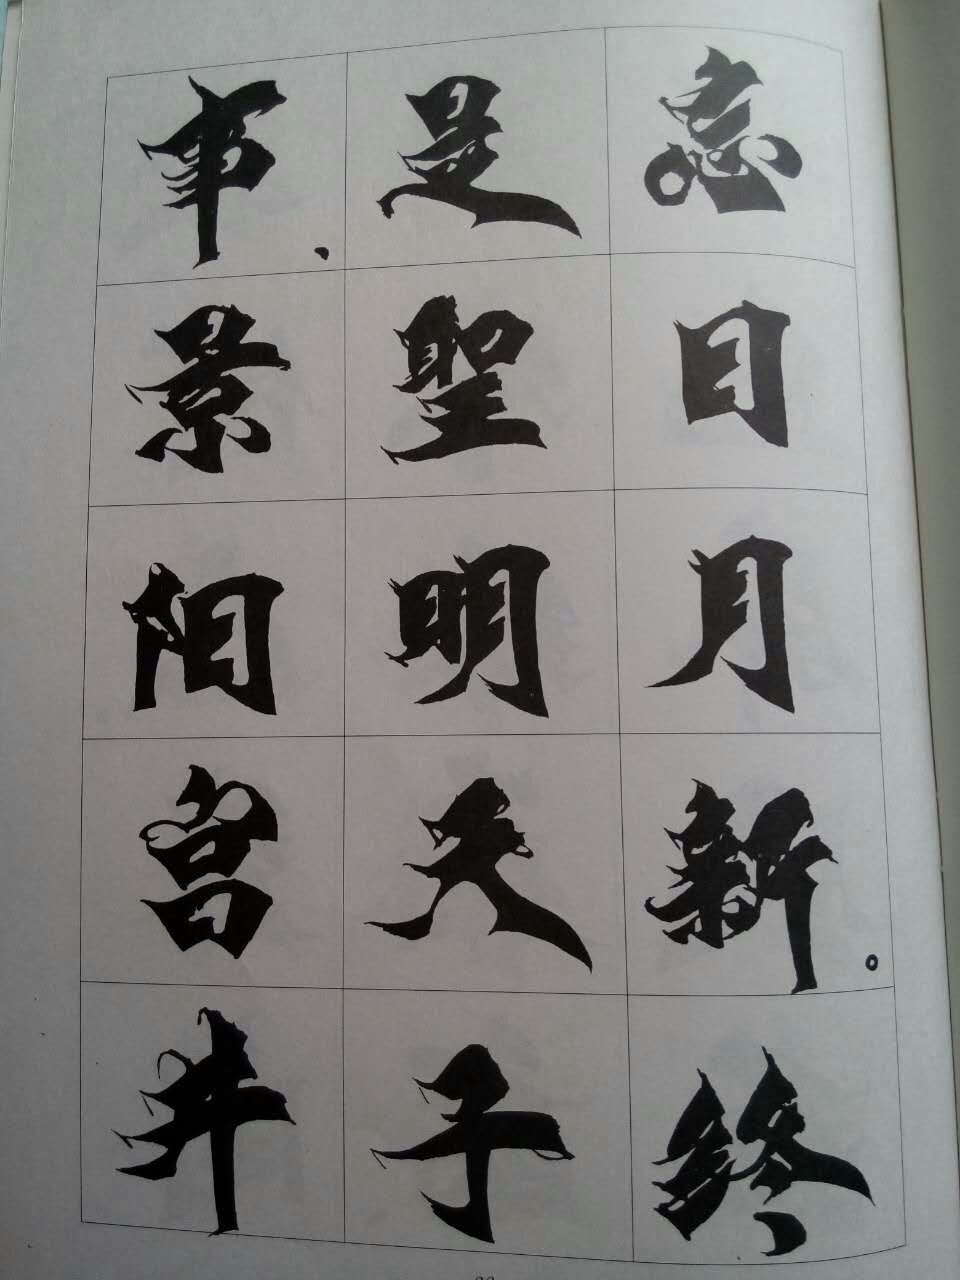 忘日月新。终
是聖明天子
事、景阳宫井